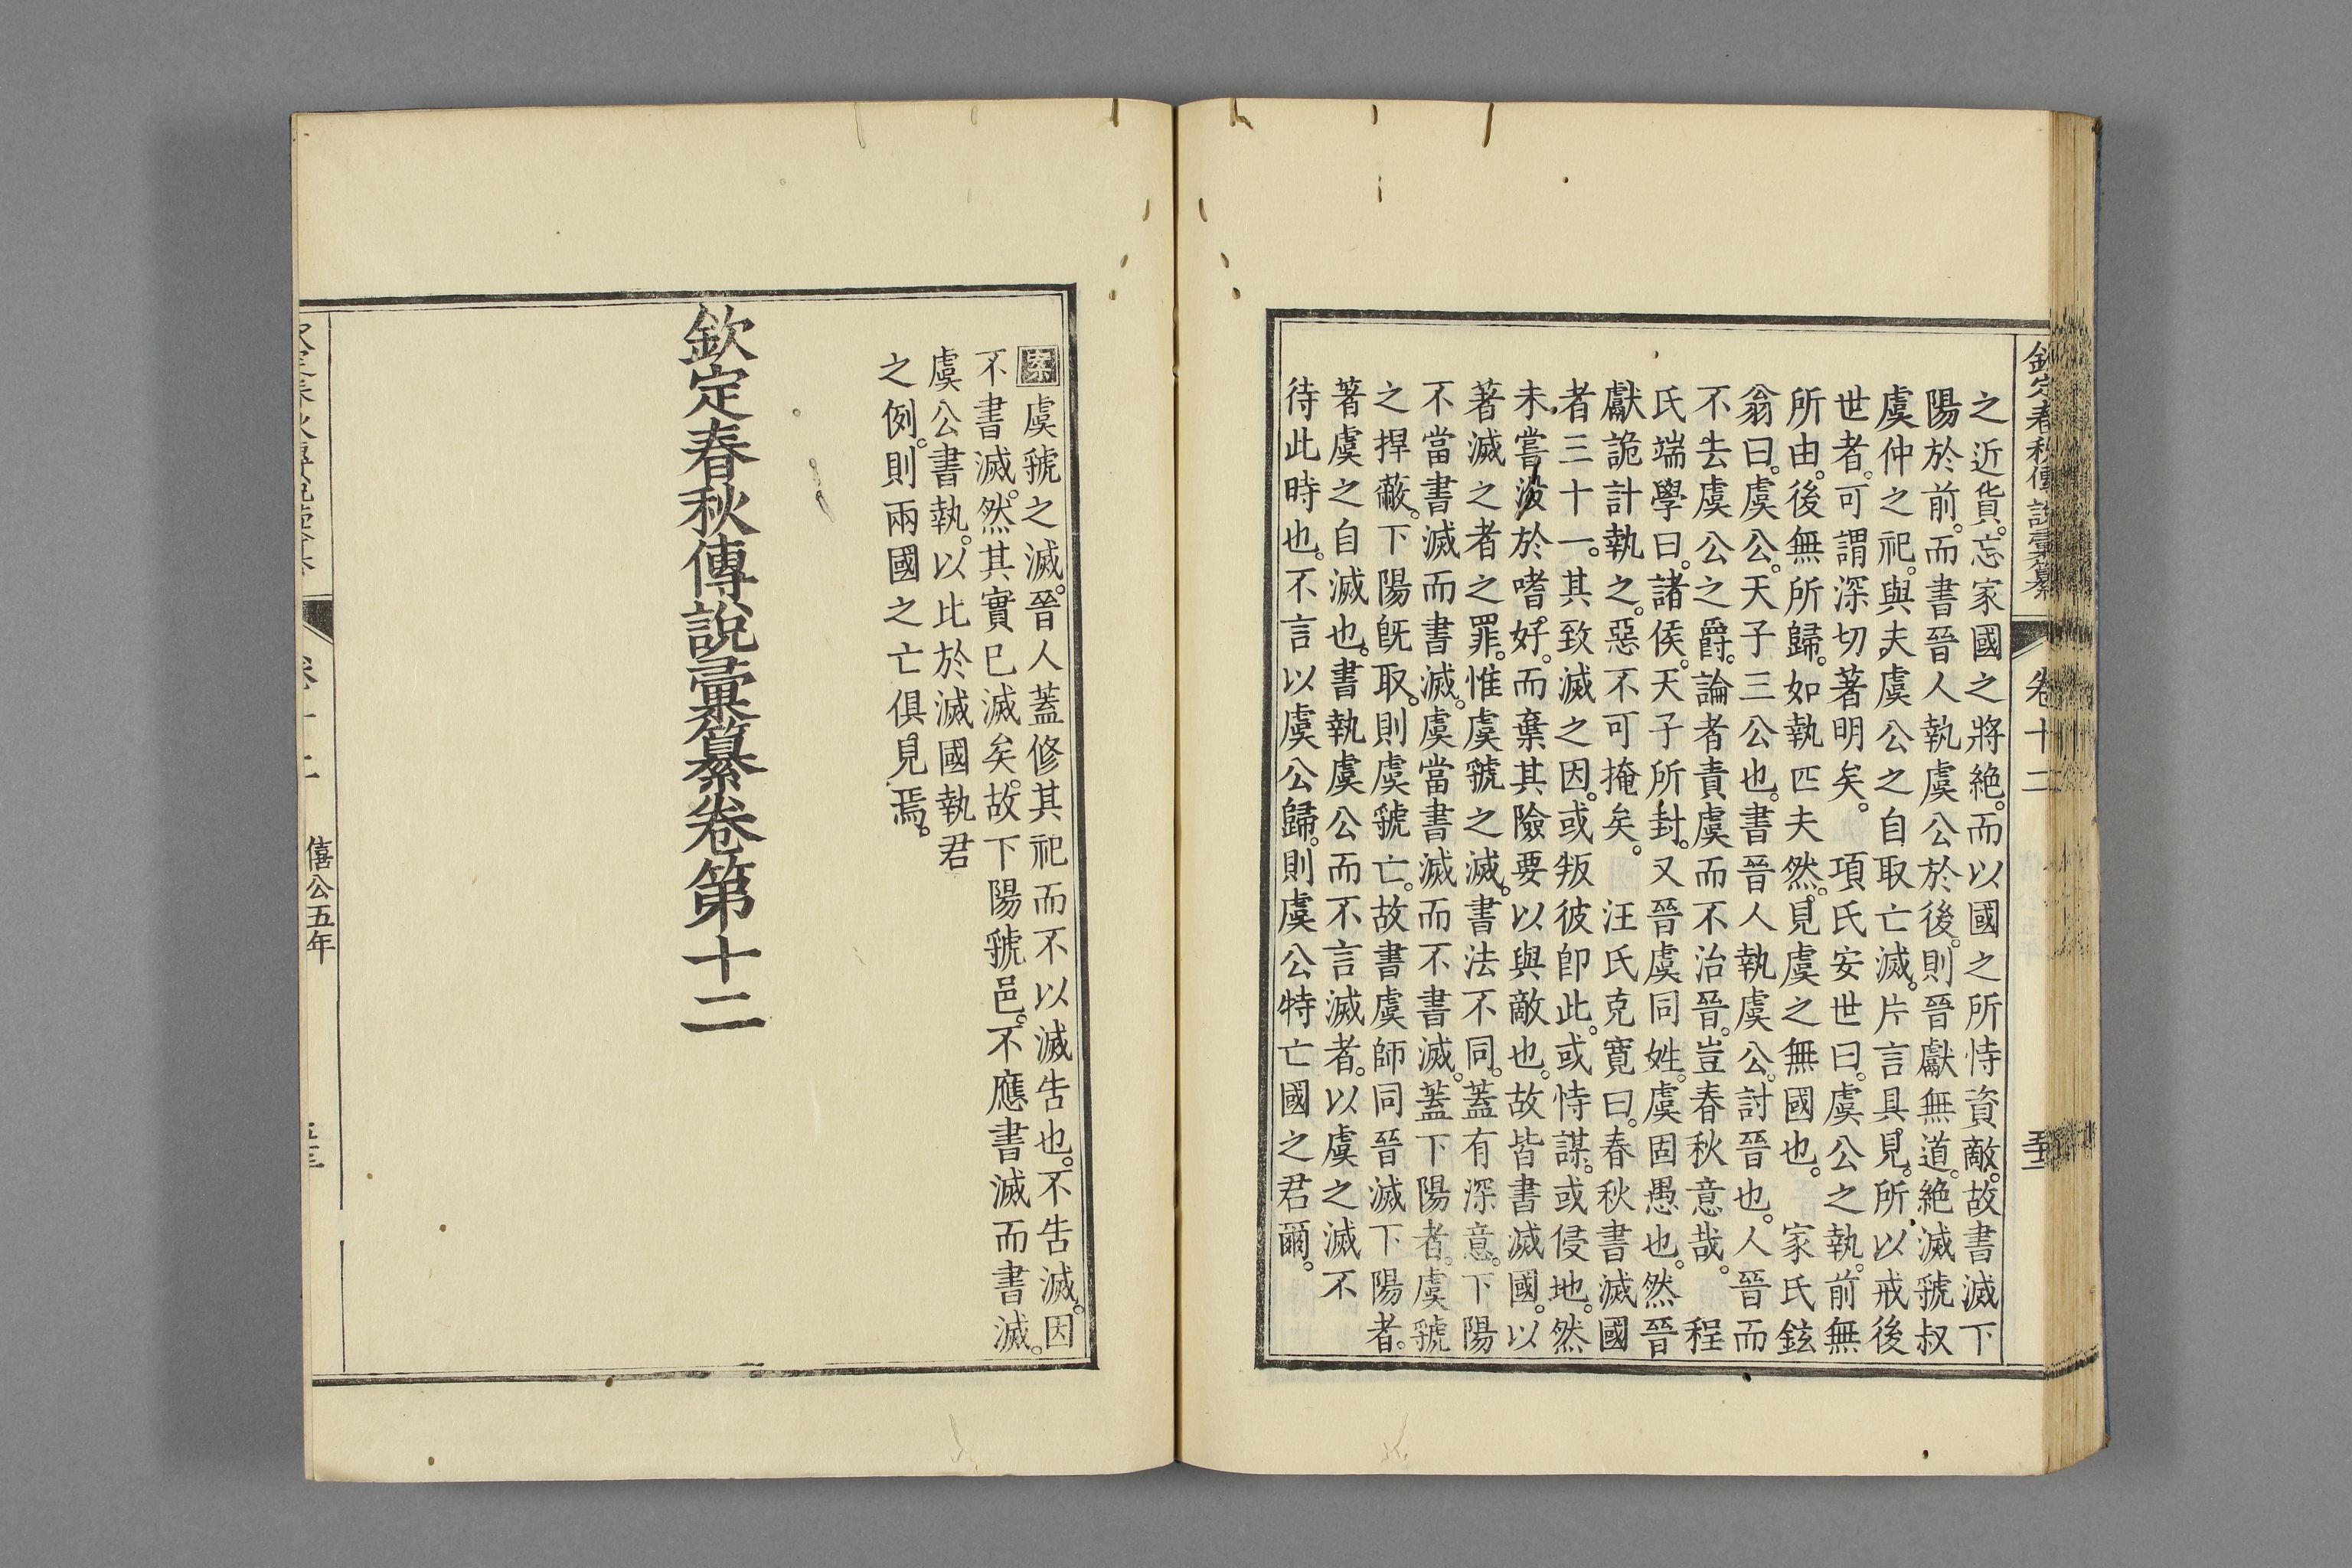 欽定春秋傳說彙纂 卷十二
之近貨。忘家國之將絶。而以國之所恃資敵。故書滅下
陽於前。而書晉人執虞公於後。則晉獻無道。絶滅虢叔
虞仲之祀。與夫虞公之自取亡滅。片言具見。所以戒後
世者。可謂深切著明矣。 項氏安世曰。虞公之執。前無
所由。後無所歸。如執匹夫然。見虞之無國也。 家氏鉉
翁曰。虞公。天子三公也。書晉人執虞公。討晉也。人晉而
不去虞公之爵。論者責虞而不治晉。豈春秋意哉。 程
氏端學曰。諸侯。天子所封。又晉虞同姓。虞固愚也。然晉
獻詭計執之。惡不可掩矣。 汪氏克寛曰。春秋書滅國
者三十一。其致滅之因。或叛彼卽此。或恃謀。或侵地。然
未嘗於嗜好。而棄其險要以與敵也。故皆書滅國。以
著滅之者之罪。惟虞虢之滅。書法不同。蓋有深意。下陽
不當書滅而書滅。虞當書滅而不書滅。蓋下陽者。虞虢
之捍蔽。下陽旣取。則虞虢亡。故書虞師同晉滅下陽者。
著虞之自滅也。書執虞公而不言滅者。以虞之滅不
待此時也。不言以虞公歸。則虞公特亡國之君爾。
案虞虢之滅。晉人蓋修其祀而不以滅告也。不告滅。因
不書滅。然其實已滅矣。故下陽虢邑。不應書滅而書滅。
虞公書執。以比於滅國執君
之例。則兩國之亡俱見焉。
欽定春秋傳說彙纂卷第十二
僖公五年